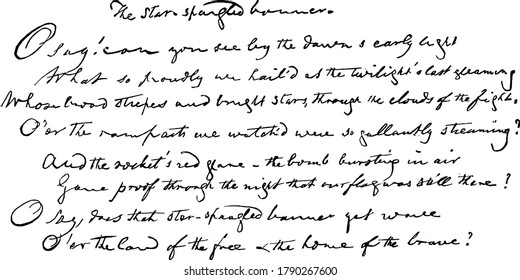 The star-spangled banner.
O say! can you see by the dawn s early light
What so proudly we hail'd at the twilight's last gleaming
Whose broad stripes and bright stars, through the clouds of the fight.
O'er the ramparts we watch'd were so gallantly streaming?
And the rocket's red glare - the bomb bursting in air
Gave proof through the night that our flag was still there?
O say, does that star-spangled banner yet wave
O'er the land of the free & the home of the brave?
shutterstock.com · 1790267600